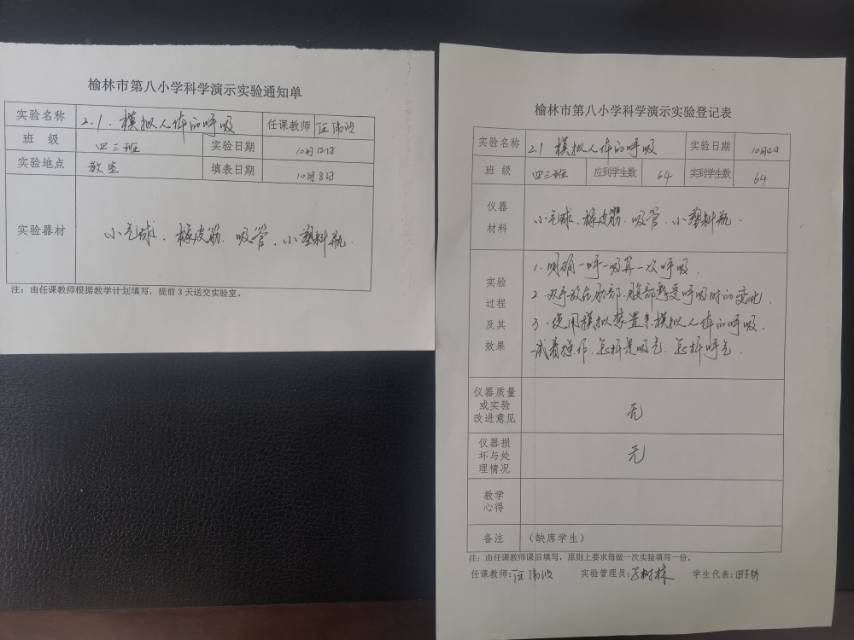 榆林市第八小学科学演示实验通知单
实验名称 2.1.模拟人体的呼吸 任课教师
班 级 四三班 实验日期
实验地点 教室 填表日期 10月8日
实验器材 小气球、橡皮筋、吸管、小塑料瓶
注：由任课教师根据教学计划填写，提前3天送交实验室。
榆林市第八小学科学演示实验登记表
实验名称 2.1 模拟人体的呼吸 实验日期
班 级 四三班 应到学生数 64 实到学生数 64
仪器
材料
小气球、橡皮筋、吸管、小塑料瓶.
实验
过程
及其
效果
1.明确一呼一吸算一次呼吸.
2.双手放在肋部、腹部感受呼吸时的变化
3.使用模拟装置来模拟人体的呼吸.
试着操作.怎样是吸气.怎样呼气.
仪器质量
或实验
改进意见
无
仪器损
坏与处
理情况
无
教学
心得
备注 （缺席学生）
注：由任课教师课后填写，原则上要求每做一次实验填写一份。
任课教师: 实验管理员: 学生代表: